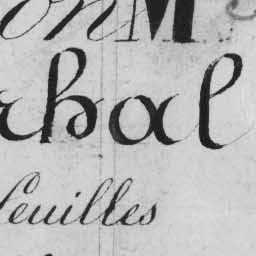 on M
rbal
feuilles